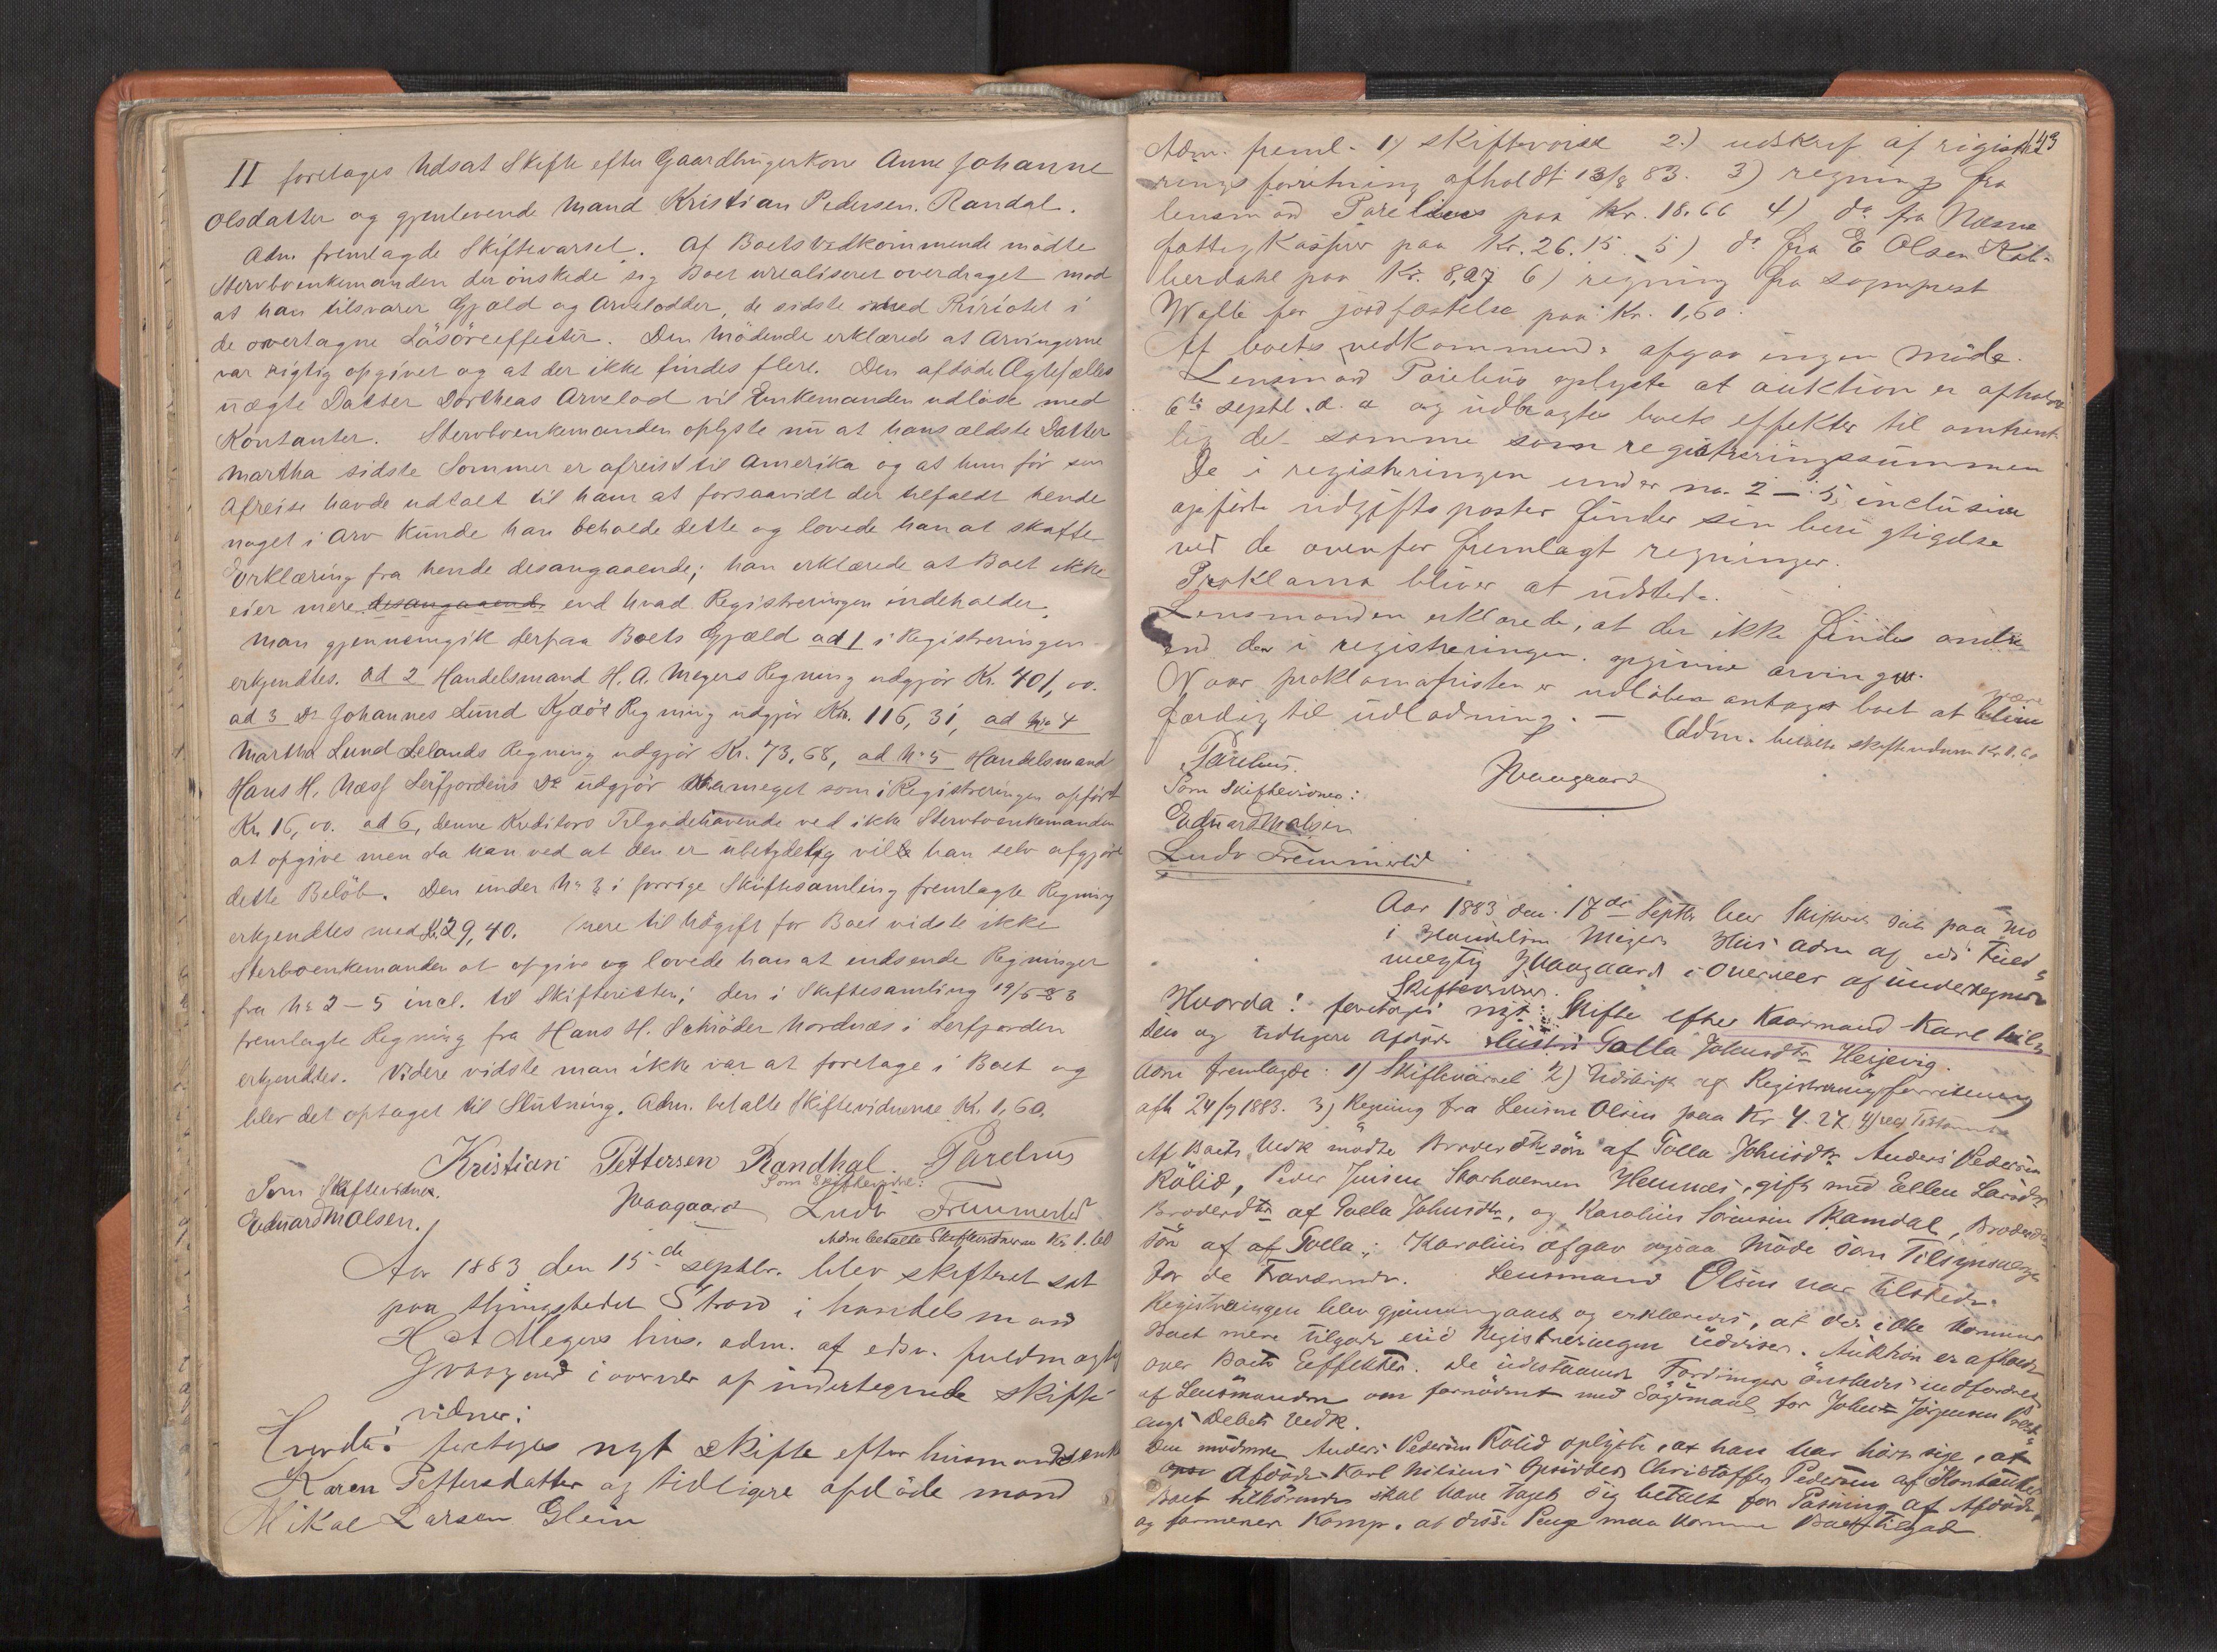 II foretages Udsat Skifte efter Gaardbrugerkone Anne Johanne
Olsdatter og gjenlevende Mand Kristian Pedersen Randal.
Adm. fremlagde Skiftevarsel. Af Boets Vedkommende mödte
Stervboenkemanden der önskede sig Boet urealiseret overdraget mod
at han tilsvarer Gjæld og Arvelodder, de sidste imod Prioritet i
de overtagne Lösöreeffecter. Den Mödende erklærede at Arvingerne
var rigtig opgivet og at der ikke findes flere. Den afdöde Ægtefælles
uægte Datter Dortheas Arvelod vil Enkemanden udlöse med
Kontanter. Stervboenkemanden oplyste nu at hans ældste Datter
Martha sidste Sommer er afreist til Amerika og at hun för sin
Afreise havde udtalt til ham at forsaavidt der tilfaldt hende
noget i Arv kunde han beholde dette og lovede han at skaffe
Erklæring fra hende desangaaende; han erklærede at Boet ikke
eier mere desangaaende end hvad Registreringen indeholder.
Man gjennemgik derpaa Boets Gjæld ad 1 i Registreringen
erkjendtes. ad 2 Handelsmand H. A. Meyers Regning udgjör Kr. 401,00.
ad 3 Do Johannes Lund Regning udgjör Kr. 116,31, ad No 4
Martha Lund Lelands Regning udgjör Kr. 73,68, ad No 5 Handelsmand
Hans H. Næss Leirfjordens Do udgjör meget som i Registreringen opfört
Kr. 16,00. ad 6, denne Kreditors Tilgodehavende ved ikke Stervboenkemanden
at opgive men da han ved at den er ubetydelig vilde han selv afgjöre
dette Belöb. Den under No 3 i forrige Skiftesamling fremlagte Regning
erkjendtes med Kr. 29,40. Mere til Udgift for Boet vidste ikke
Sterboenkemanden at opgive og lovede han at indsende Regninger
fra No 2 – 5 incl. til Skifteretten; den i Skiftesamling 19/5 83
fremlagte Regning fra Hans H. Schröder Nordnæs i Lerfjorden
erkjendtes. Videre vidste man ikke var at foretage i Boet og
blev det optaget til Slutning. Adm. betalte Skiftevidnerne Kr. 1,60.
Kristian Pettersen Randhal. Parelius
Som Skiftevidner. Som Skiftevidne:
Eduard M Olsen. JVaagaard Ludv Fremmerlid
Adm betalte Skiftevidnerne Kr 1.60
Aar 1883 den 15de septbr. blev skifteret sat
paa thingstedet Strand i handelsmand
H A Meyers hus. adm. af edsv. fuldmægtig
JVaagaard i overvær af undertegnede skifte-
vidner:
Hvorda! foretages nyt skifte efter husmandsenke
Karen Pettersdatter og tidligere afdöde mand
Mikal Larsen Glein
143
Adm. freml. 1) skiftevarsel 2.) udskrif af registre-
ringsforretning afholdt 13/8 83. 3) regning fra
lensmand Parelius paa Kr. 18.66 4) do fra Nesna
fattigkasse paa Kr. 26.15 5) do fra E Olsen Kob-
berdahl paa Kr. 8,27 6) regning fra sogneprest
Walle for jordfæstelse paa Kr. 1,60.
Af boets vedkommende afgav ingen möde.
Lensmand Parelius oplyste at auktion er afholdt
6te septb. d. a og udbragtes boets effekter til omtrent-
lig det samme som registreringssummen
De i registreringen under no. 2 – 5 inclusive
opförte udgiftsposter finder sin berigtigelse
ved de ovenfor fremlagt regninger.
Proklama bliver at udstede.
Lensmanden erklærede, at der ikke findes andre
end de i registreringen opgivne arvinger.
Naar proklamafristen er udlöben antages boet at være blive
færdig til udlodning. — Adm. betalte skiftevidnerne Kr. 1.60
Parelius. JVaagaard
Som Skiftevidner:
Eduard M Olsen
Ludv Fremmerlid
Aar 1883 den 17de Septbr blev Skifteret sat paa Mo
i Handelsm Meyers Hus adm af eds Fuld-
mægtig JVaagaard i Overvær af undertegnede
Skiftevidner.
Hvorda! foretages nyt Skifte efter Kaarmand Karl Nil-
sen og tidligere afdöde Hustru Tolla Johnsdtr
Adm fremlagde: 1) Skiftevarsel 2) Udskrift af Registreringsforretning
afh 24/7 1883. 3) Regning fra Lensm Olsen paa Kr 4.27
Af Boets Vedk mödte Broderdtrsön af Tolla Johnsdtr Anders Pedersen
Rölid, Peder Jensen Hemnes, gift med Ellen Larsdtr
Broderdtr af Tolla Johnsdtr, og Karolius Sörensen Ramdal, Broderdtr
sön af af Tolla; Karolius afgav ogsaa Möde som Tilsynsværge
for de Fraværende. Lensmand Olsen var tilstede.
Registreringen blev gjennemgaaet og erklæredes, at der ikke kommer
Boet mere tilgode end Registreringen udviser. Auktion er afholdt
over Boets Effekter. De udestaaende Fordringer önskedes indfordret
af Lensmanden om fornödent med Sögsmaal for John Jörgensen
Debets Vedk.
Den mödende Anders Pedersen Rölid oplyste, at han har hört sige, at
afdöde Karl Nilsens Opsidder Christoffer Pedersen af Kontanter
Boet tilhörende skal have taget sig betalt for Pasning af Afdöde,
og formener Komp. at disse Penge maa komme Boet tilgode